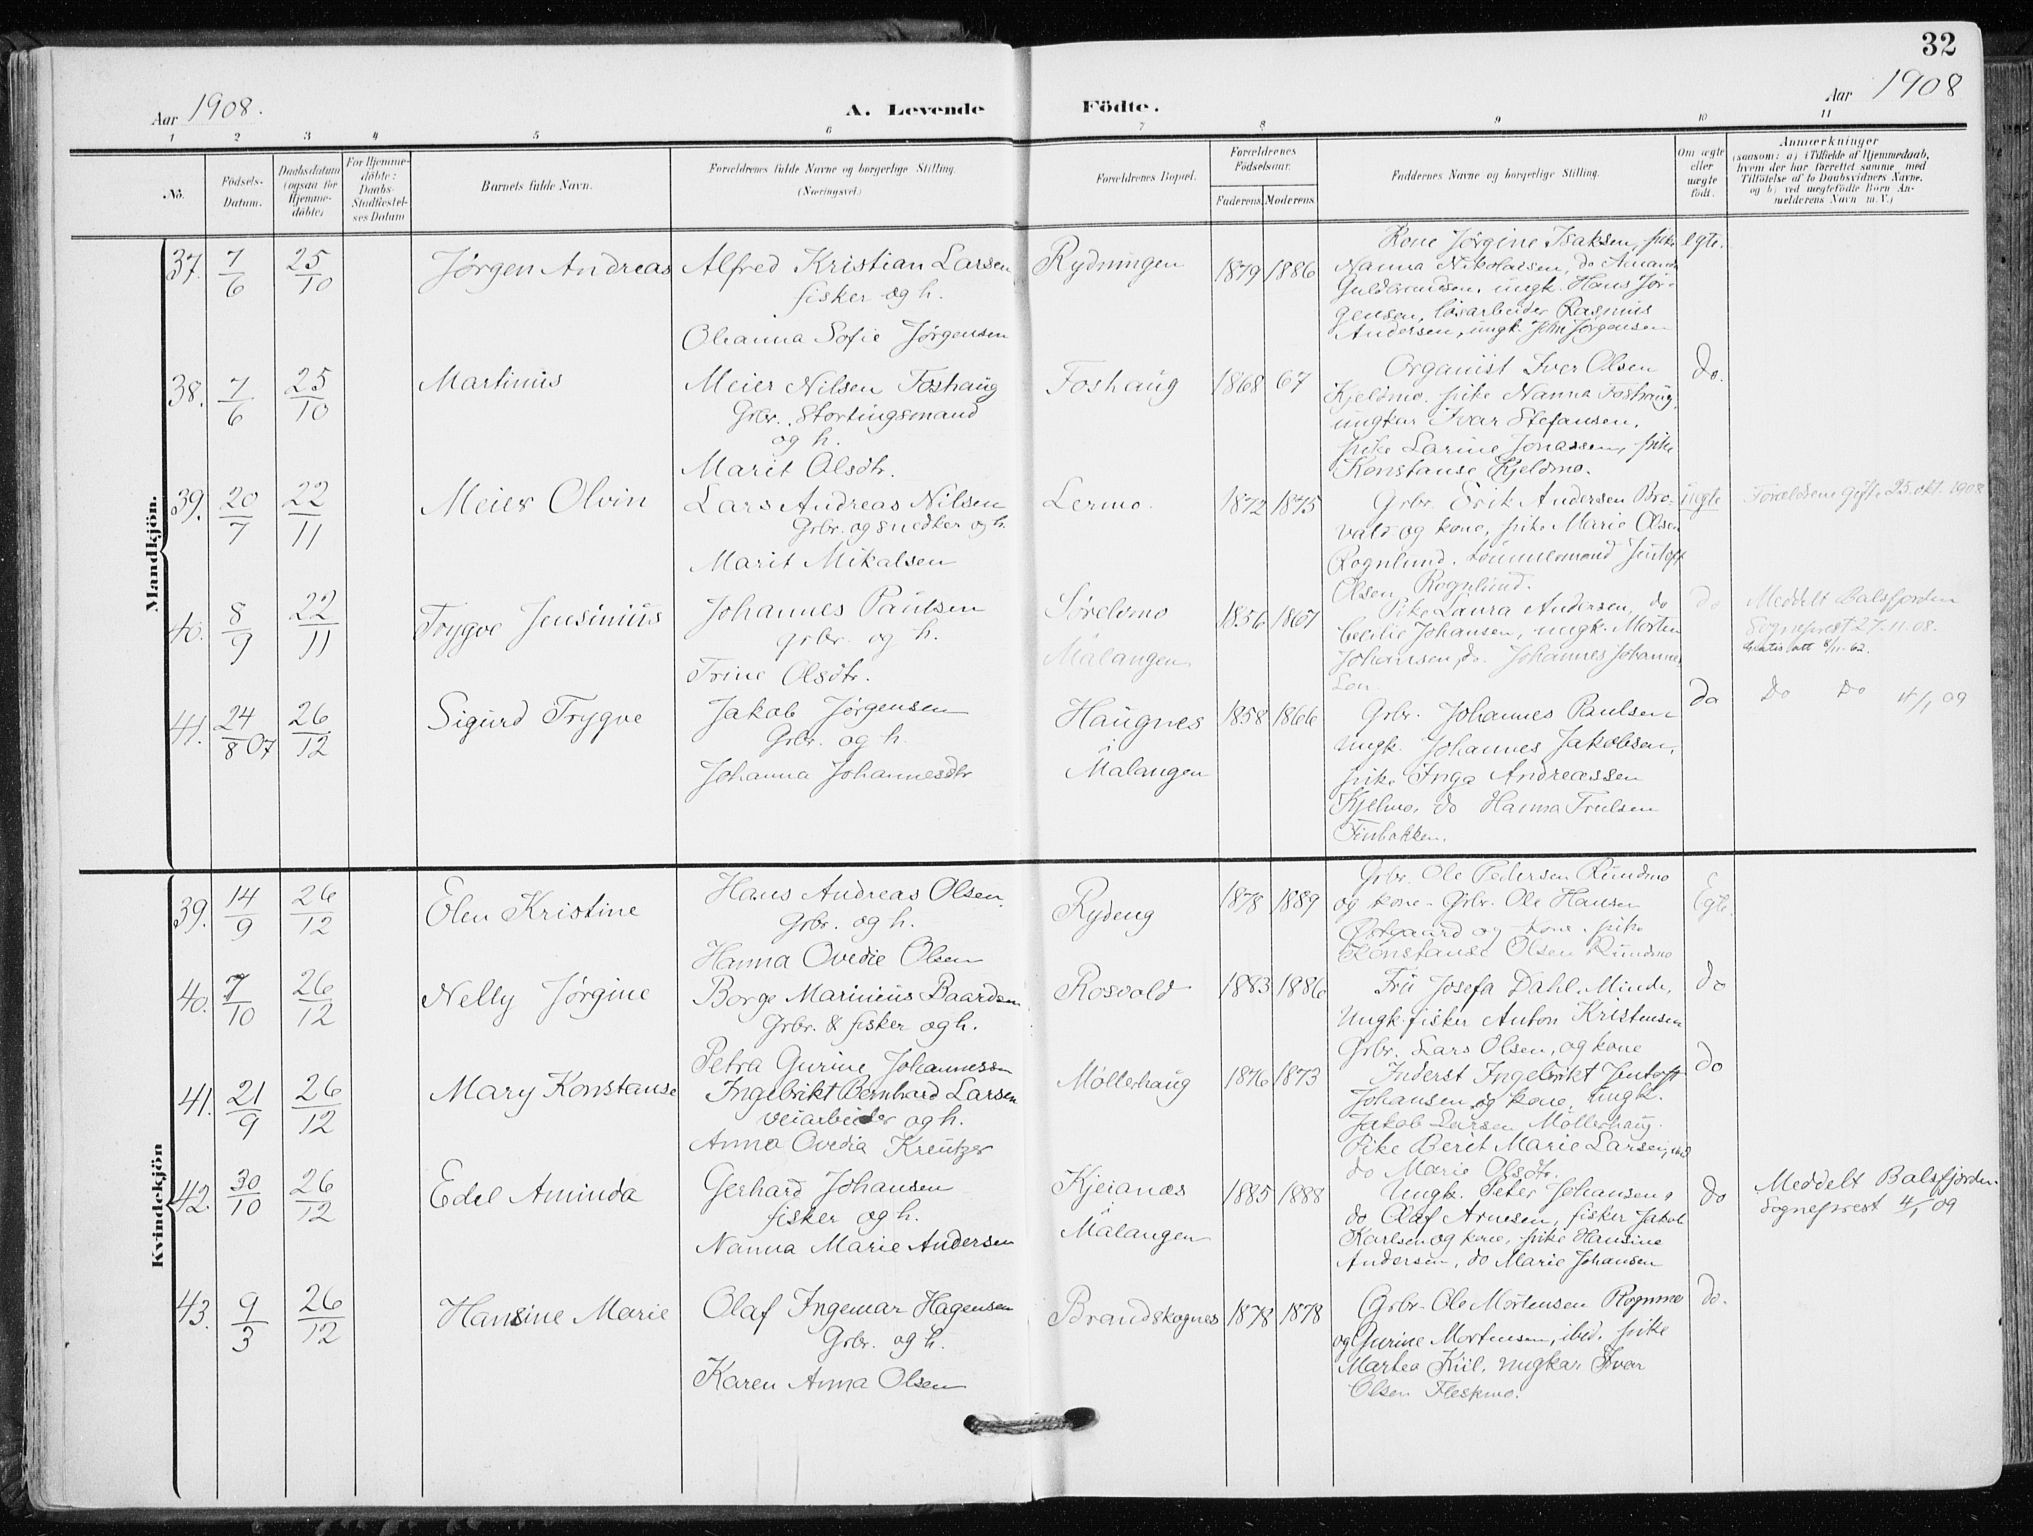 32
Aar 1908.
A. Levende Födte.
Aar 1908
1 2 3 4 5 6 7 8 9 10 11
No.
Födsels-
Datum.
Daabsdatum
(ogsaa for
Hjemme-
döbte)
For Hjemme-
döbte:
Daabs-
Stadfæstel-
ses Datum
Barnets fulde Navn.
Forældrenes fulde Navne og borgerlige Stilling.
(Næringsvei.)
Forældrenes Bopæl.
Forældrenes
Födselsaar.
Faderens. Moderens.
Faddernes Navne og borgerlige Stilling.
Om ægte
eller
uægte
födt.
Anmærkninger
(saasom: a) i Tilfælde af Hjemmedaab,
hvem der har forrettet samme, med
Tilföielse af to Daabsvidners Navne,
og b) ved uægtefödte Börn An-
melderens Navn m. V.)
Mandkjön.
37. 7/6 25/10 Jørgen Andreas
Alfred Kristian Larsen
fisker og h.
Oleanna Sofie Jørgensen
Rydningen 1879 1886
Kone Jørgine Isaksen, pike
Nanna Nikolaisen, do Amanda
Guldbrandsen, ungk. Hans Jør-
gensen, løsarbeider Rasmus
Andersen, ungk. John Jørgensen
egte.
38. 7/6 25/10 Martinus
Meier Nilsen Foshaug
Grbr. Stortingsmand
og h.
Marit Olsdtr.
Foshaug 1868 67
Organist Iver Olsen
Kjeldmo, pike Nanna Foshaug,
ungkar Ivar Stefansen,
pike Larine Jonassen, pike
Konstanse Kjeldmo.
do.
39. 20/7 22/11 Meier Olvin
Lars Andreas Nilsen
Grbr. og snedker og h.
Marit Mikalsen
Lermo. 1872 1875
Grbr. Erik Andersen Bra-
vald og kone, pike Marie Olsen
Rognlund, tømmermand Jentoft
Olsen Rognlund.
uegte
Forældrene gift 25 okt. 1908
40. 8/9 22/11 Trygve Jensinius
Johannes Paulsen
grbr. og h.
Trine Olsdtr.
Sørelvmo
Malangen 1856 1867
Pike Laura Andersen, do
Cecilie Johansen, ungk. Morten
Johansen, do. Johannes Johanne-
sen
do
Meddelt Balsfjorden
Sogneprest 27.11.08.
41. 24/8 07 26/12 Sigurd Trygve
Jakob Jørgensen
Grbr. og h.
Johanna Johannesdtr
Haugnes
i
Malangen 1858 1866
Grbr. Johannes Paulsen
ungk. Johannes Jakobsen,
pike Inga Andreassen
Kjelmo, do Hanna Trulsen
Finbakken.
do
Do Do 4/1 09
Kvindekjön
39. 14/9 26/12 Elen Kristine
Hans Andreas Olsen
Grbr. og h.
Hanna Ovedie Olsen
Rydeng 1878 1889
Grbr. Ole Pedersen Rundmo
og kone. Grbr. Ole Hansen
Østgaard og kone, pike
Konstanse Olsen Rundmo
Egte.
40. 7/10 26/12 Nelly Jørgine
Borge Marinius Baardsen
Grbr. & fisker og h.
Petra Gurine Johannessen
Rosvold 1883 1886
Frü Josefa Dahl. Minde,
ungk. fisker Anton Kristensen
Grbr. Lars Olsen, og kone
do
41. 21/9 26/12 Mary Konstanse
Ingebrikt Bernhard Larsen
veiarbeider og h.
Anna Ovedia Kreutzer
Møllerhaug 1876 1873
Inderst Ingebrikt Jentoft
Johansen og kone, ungk.
Jakob Larsen Møllerhaug.
Pike Berit Marie Larsen, ibid
do Marie Olsdtr.
do
42. 30/10 26/12 Edel Aminda
Gerhard Johansen
fisker og h.
Nanna Marie Andersen
Kjeianæs
i
Malangen 1885 1888
Ungk. Peter Johansen,
do Olaf Arnesen, fisker Jakob
Karlsen og kone, pike Hansine
Andersen, do Marie Johansen
do
Meddelt Balsfjorden
Sogneprest 4/1 09
43. 9/3 26/12 Hansine Marie
Olaf Ingemar Hagensen
Grbr. og h.
Karen Anna Olsen
Brandskognes 1878 1878
Grbr. Ole Mortensen Rognmo
og Gurine Mortensen, ibid. pike
Martea Kiil, ungkar Ivar
Olsen Fleskmo.
do.